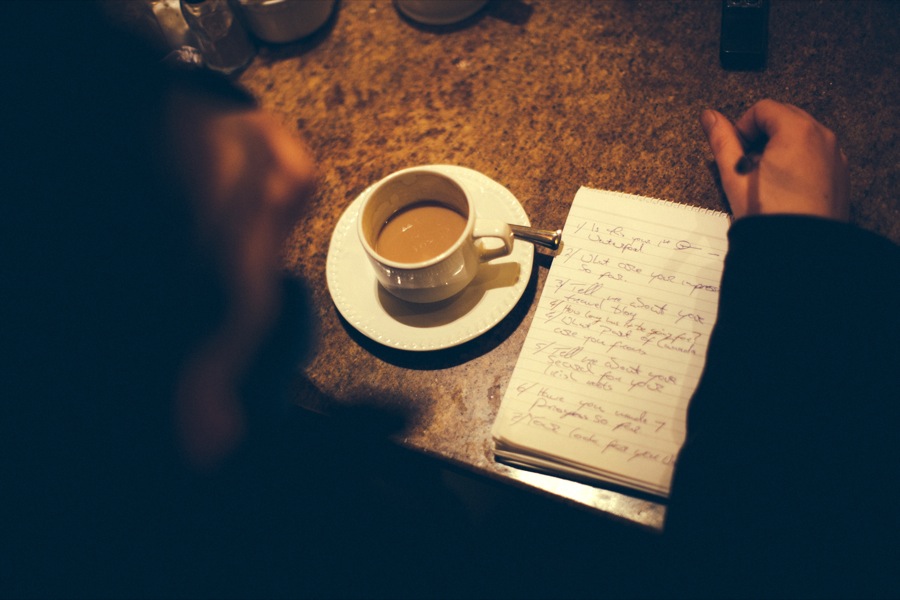 1/ Is this your 1st
Waterford
2/ What are your impress
so far
3/ Tell me about your
travel blog
4/ How long have to be going for?
5/ What Part of Canada
are you from
5/ Tell me about your
search for your
Irish roots
6/ Have you made ?
progress so far
7/ Your for your